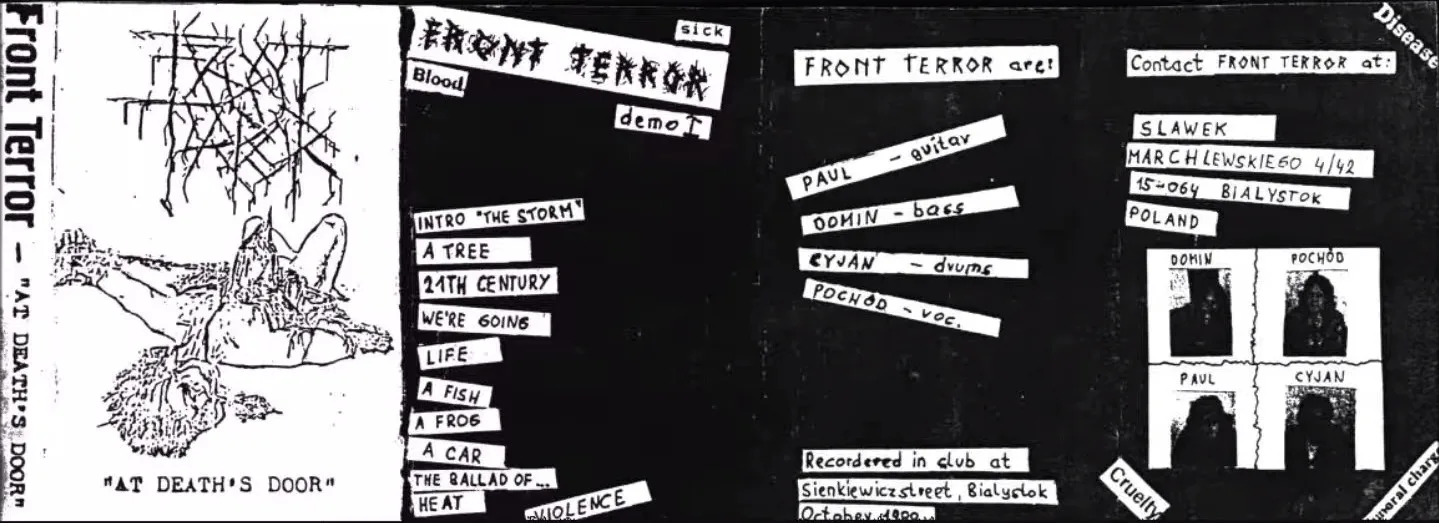 Front Terror – "AT DEATH'S DOOR"
"AT DEATH'S DOOR"
sick
FRONT TERROR
Blood
demo I
INTRO "THE STORM"
A TREE
21TH CENTURY
WE'RE GOING
LIFE
A FISH
A FROG
A CAR
THE BALLAD OF...
HEAT
VIOLENCE
FRONT TERROR are:
PAUL – guitar
DOMIN – bass
CYJAN – drums
POCHÓD – voc.
Recordered in club at
Sienkiewiczstreet, Bialystok
October
Disease
Contact FRONT TERROR at:
SLAWEK
MARCHLEWSKIEGO 4/42
15-064 BIALYSTOK
POLAND
DOMIN
POCHÓD
PAUL
CYJAN
Cruelty